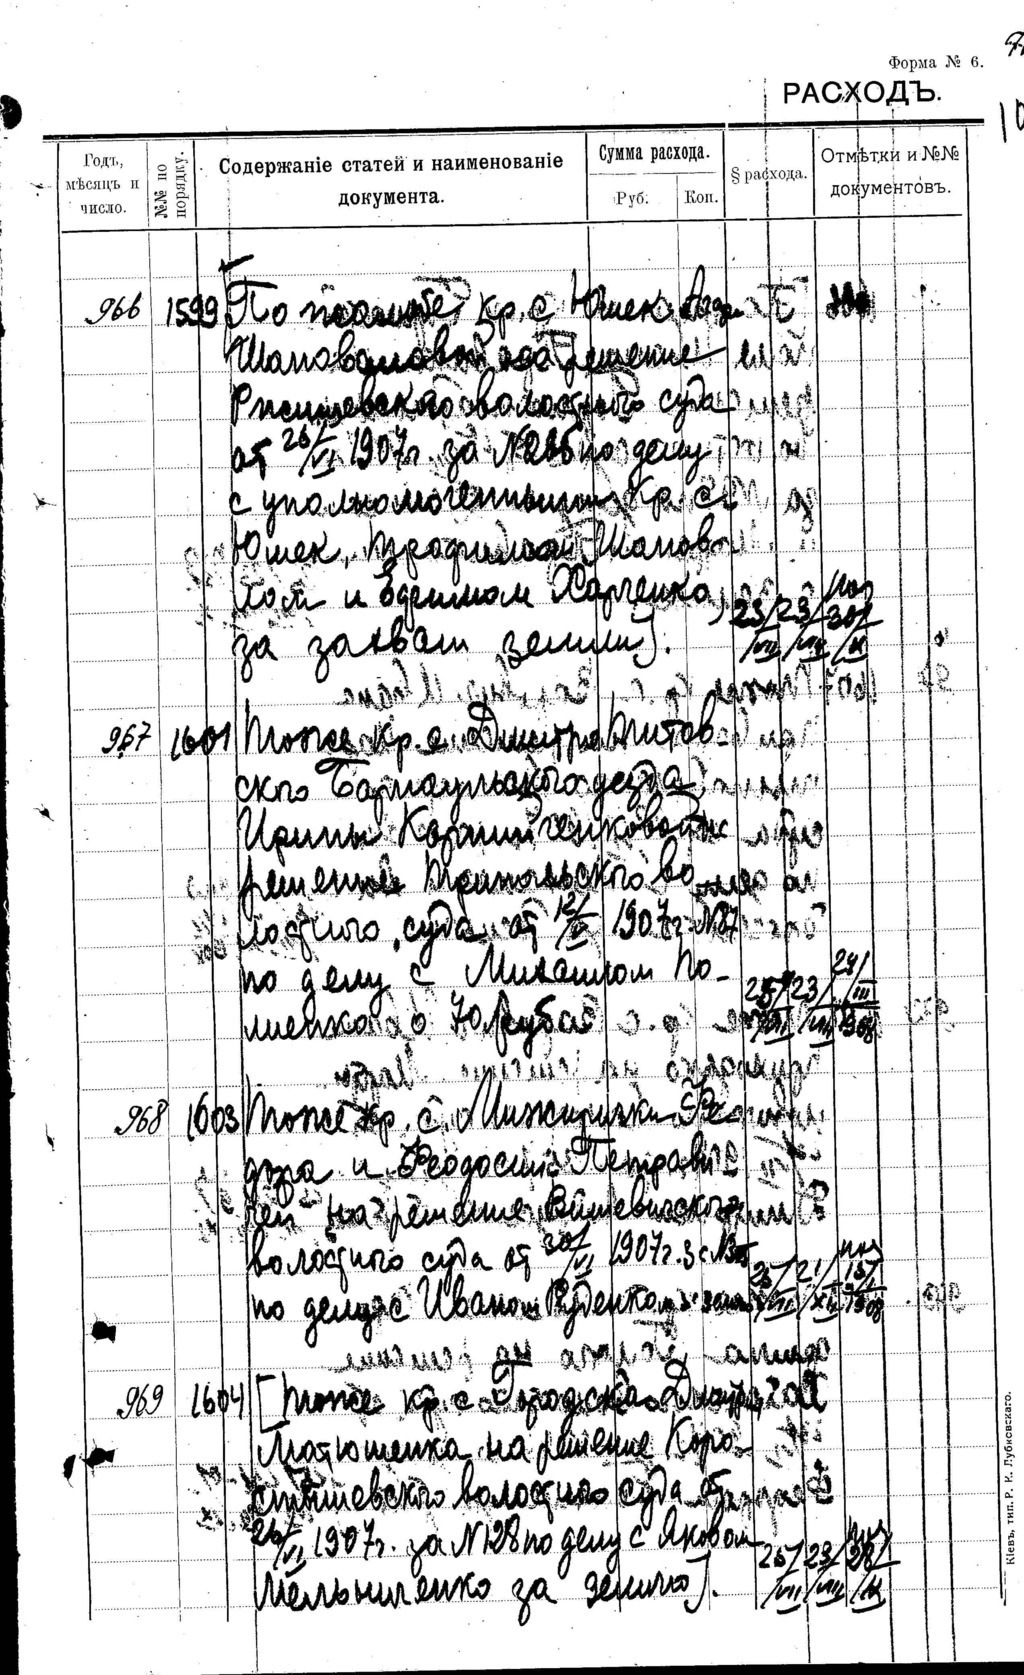 Форма № 6.
РАСХОДЪ.
Годъ, мѣсяцъ и число.
№№ по порядку.
Содержаніе статей и наименованіе документа.
Сумма расхода.
Руб.
Коп.
§ расхода.
Отмѣтки и №№ документовъ.
966 1599 По жалобе кр. с. Юшек
Шаповаловой на решение
Ржищевского волостного суда
от 26/VI 1907 г. за № по делу
с уполномоченными кр. с.
Юшек, Трофимом Шапова-
лом и Ефимом Харченко
за захват земли). 23/VII 23/VIII 30/IX
967 1601 Тоже кр. с. Дмитров-
ского Барнаульского уезда
Ирины на
решение Трипольского во-
лостного суда от 12/V 1907 г. № 87
по делу с Михаилом По-
о 70 рублей 25/VII 23/VIII 24/III 1908
968 1603 Тоже кр. с. Межирички Фе-
дора и Феодосии Петрови-
чей на решение Вышевичского
волостного суда от 30/VI 1907 г. за №
по делу с Иваном Руденком 25/VII 21/XII 15/I 1908
969 1604 [Тоже кр. с. Городска Дмитра
Матюшенка на решение Коро-
стышевского волостного суда от
26/VI 1907 г. за № 128 по делу с Яковом 25/VII 23/VIII 28/IX
Мельниченко за землю).
Кіевъ, тип. Р. К. Лубковскаго.